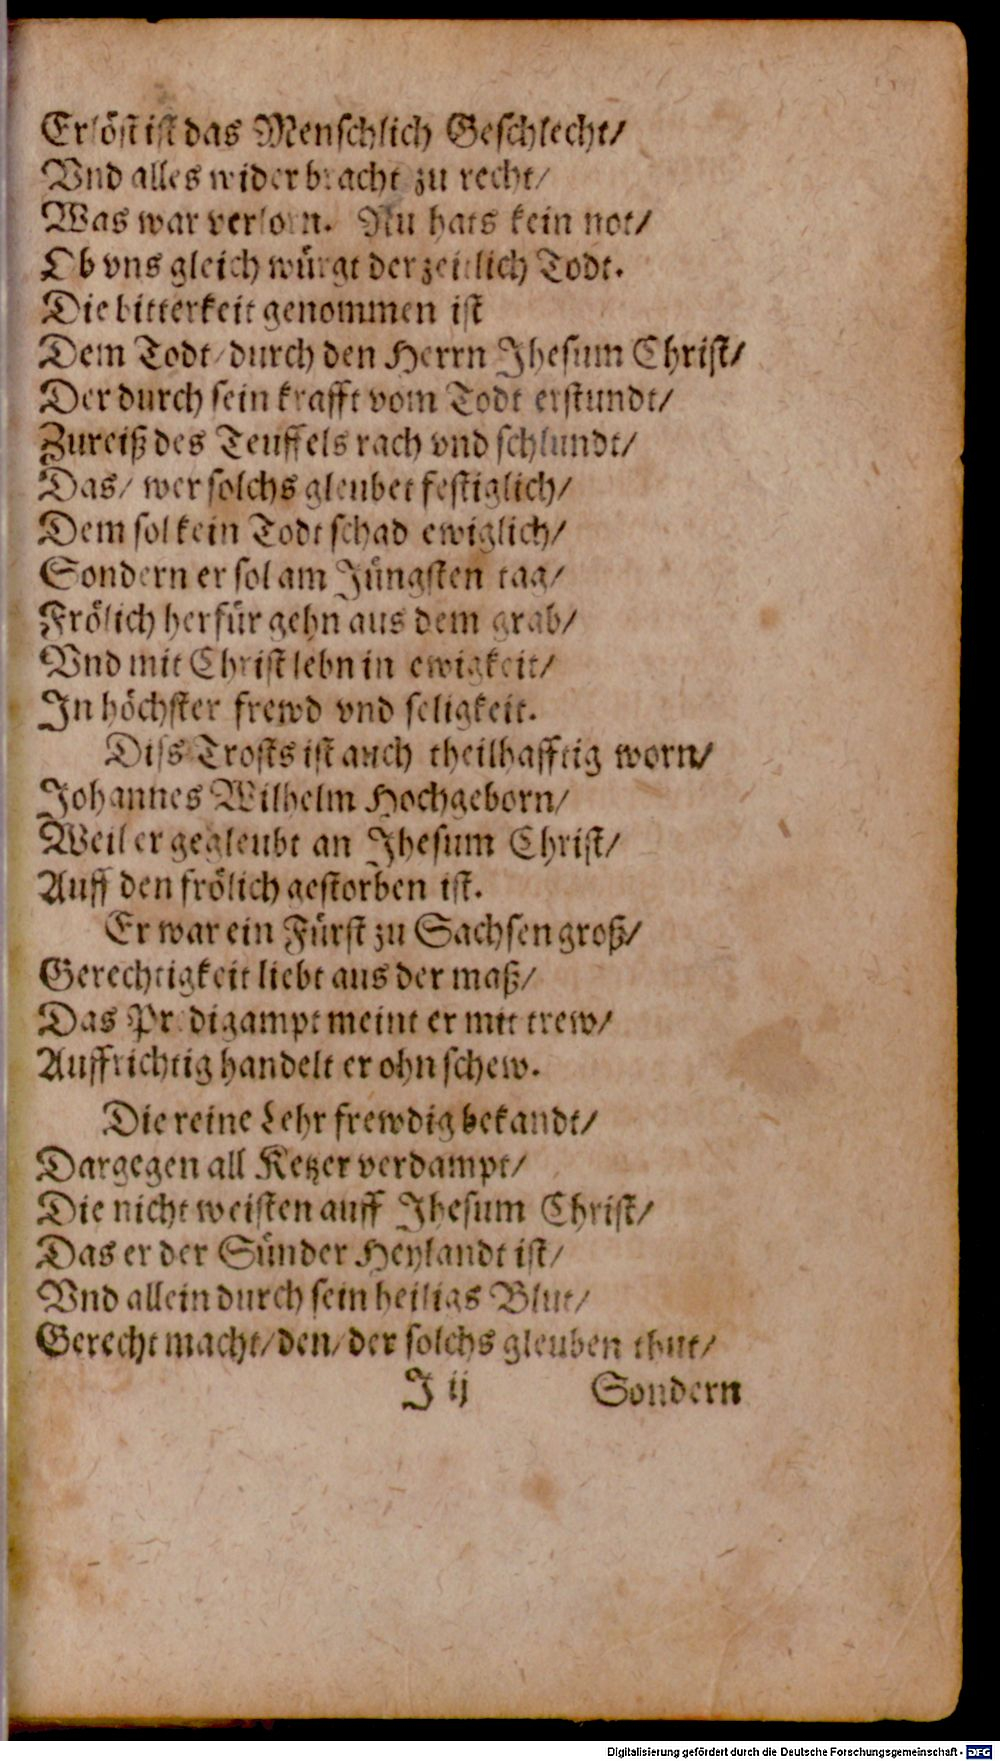 Erlöst ist das Menschlich Geschlecht/
Vnd alles widerbracht zu recht/
Was war verlorn. Nu hats kein not/
Ob vns gleich würgt der zeitlich Todt.
Die bitterkeit genommen ist
Dem Todt/durch den Herrn Jhesum Christ/
Der durch sein krafft vom Todt erstundt/
Zureiß des Teuffels rach vnd schlundt/
Das/ wer solchs gleubet festiglich/
Dem sol kein Todt schad ewiglich/
Sondern er sol am Jüngsten tag/
Frölich herfür gehn aus dem grab/
Vnd mit Christ lebn in ewigkeit/
In höchster frewd vnd seligkeit.
Diss Trosts ist auch theilhafftig worn/
Johannes Wilhelm Hochgeborn/
Weil er gegleubt an Jhesum Christ/
Auff den frölich gestorben ist.
Er war ein Fürst zu Sachsen groß/
Gerechtigkeit liebt aus der maß/
Das Predigampt meint er mit trew/
Auffrichtig handelt er ohn schew.
Die reine Lehr frewdig bekandt/
Dargegen all Ketzer verdampt/
Die nicht weisten auff Jhesum Christ/
Das er der Sünder Heylandt ist/
Vnd allein durch sein heiligs Blut/
Gerecht macht/den/der solchs gleuben thut/
J ij Sondern
Digitalisierung gefördert durch die Deutsche Forschungsgemeinschaft - DFG